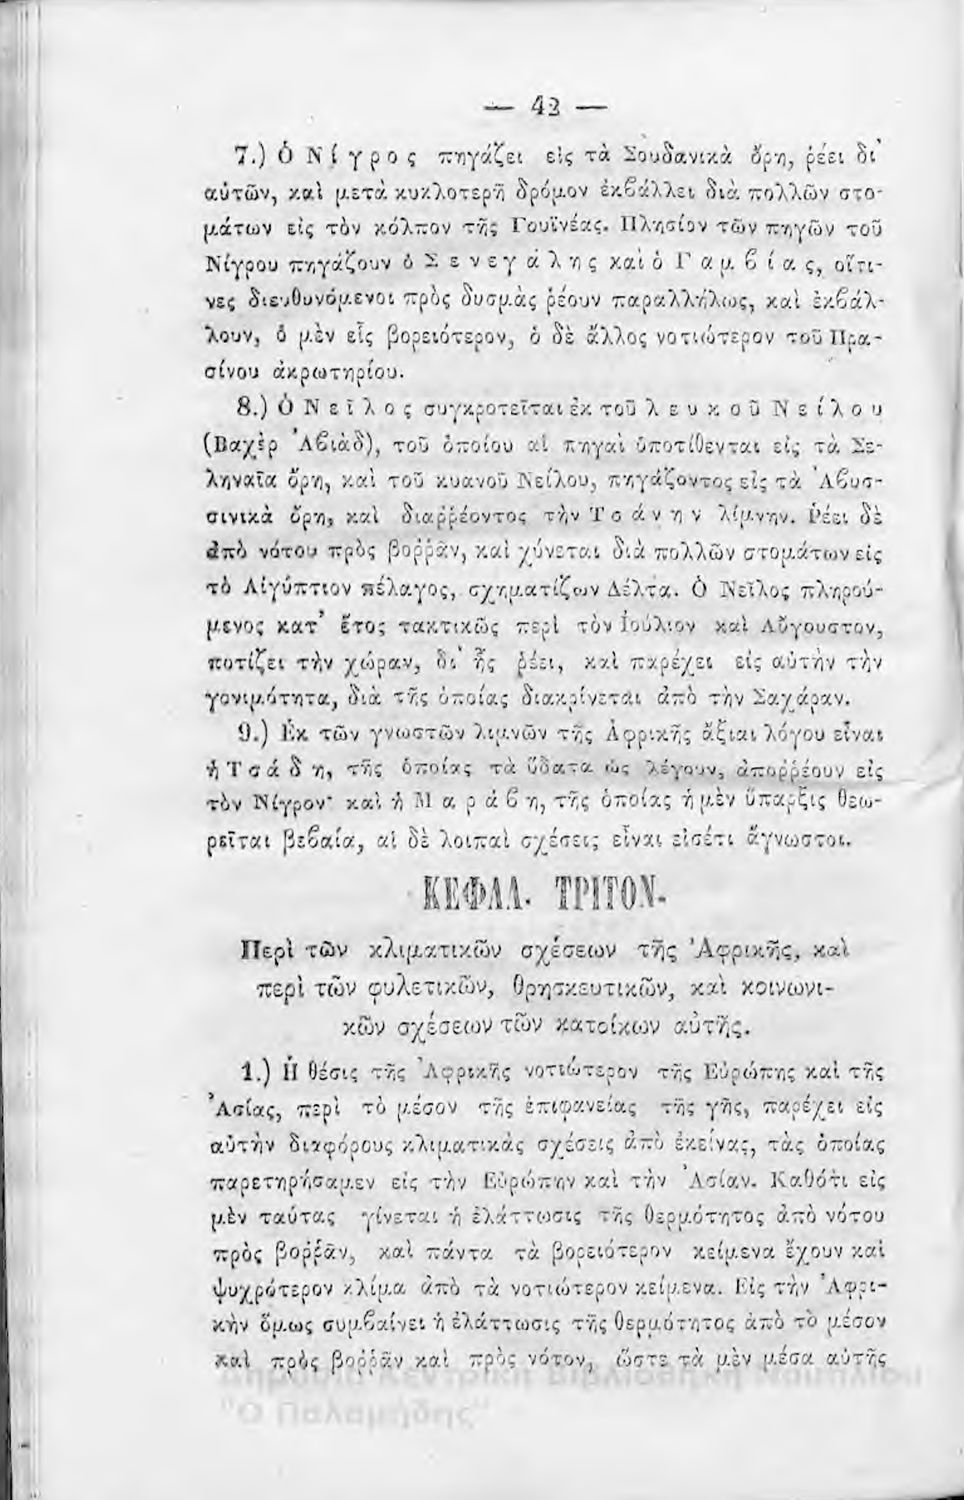 — 42 —
7.) Ὁ Νίγρος πηγάζει εἰς τὰ Σουδανικὰ ὄρη, ῥέει δι᾽
αὐτῶν, καὶ μετὰ κυκλοτερῆ δρόμον ἐκβάλλει διὰ πολλῶν στο-
μάτων εἰς τὸν κόλπον τῆς Γουϊνέας. Πλησίον τῶν πηγῶν τοῦ
Νίγρου πηγάζουν ὁ Σενεγάλης καὶ ὁ Γαμβίας, οἵτι-
νες διευθυνόμενοι πρὸς δυσμὰς ῥέουν παραλλήλως, καὶ ἐκβάλ-
λουν, ὁ μὲν εἷς βορειότερον, ὁ δὲ ἄλλος νοτιώτερον τοῦ Πρα-
σίνου ἀκρωτηρίου.
8.) Ὁ Νεῖλος συγκροτεῖται ἐκ τοῦ λευκοῦ Νείλου
(Βαχὲρ Ἀβιὰδ), τοῦ ὁποίου αἱ πηγαὶ ὑποτίθενται εἰς τὰ Σε-
ληναῖα ὄρη, καὶ τοῦ κυανοῦ Νείλου, πηγάζοντος εἰς τὰ Ἀβυσ-
σινικὰ ὄρη, καὶ διαρρέοντος τὴν Τσάνην λίμνην. Ῥέει δὲ
ἀπὸ νότου πρὸς βορρᾶν, καὶ χύνεται διὰ πολλῶν στομάτων εἰς
τὸ Αἰγύπτιον πέλαγος, σχηματίζων Δέλτα. Ὁ Νεῖλος πληρού-
μενος κατ᾽ ἔτος τακτικῶς περὶ τὸν Ἰούλιον καὶ Αὔγουστον,
ποτίζει τὴν χώραν, δι᾽ ἧς ῥέει, καὶ παρέχει εἰς αὐτὴν τὴν
γονιμότητα, διὰ τῆς ὁποίας διακρίνεται ἀπὸ τὴν Σαχάραν.
9.) Ἐκ τῶν γνωστῶν λιμνῶν τῆς Ἀφρικῆς ἄξιαι λόγου εἶναι
ἡ Τσάδη, τῆς ὁποίας τὰ ὕδατα ὡς λέγουν, ἀπορρέουν εἰς
τὸν Νίγρον· καὶ ἡ Μαράβη, τῆς ὁποίας ἡ μὲν ὕπαρξις θεω-
ρεῖται βεβαία, αἱ δὲ λοιπαὶ σχέσεις εἶναι εἰσέτι ἄγνωστοι.
ΚΕΦΑΛ. ΤΡΙΤΟΝ.
Περὶ τῶν κλιματικῶν σχέσεων τῆς Ἀφρικῆς, καὶ
περὶ τῶν φυλετικῶν, θρησκευτικῶν, καὶ κοινωνι-
κῶν σχέσεων τῶν κατοίκων αὐτῆς.
1.) Ἡ θέσις τῆς Ἀφρικῆς νοτιώτερον τῆς Εὐρώπης καὶ τῆς
Ἀσίας, περὶ τὸ μέσον τῆς ἐπιφανείας τῆς γῆς, παρέχει εἰς
αὐτὴν διαφόρους κλιματικὰς σχέσεις ἀπὸ ἐκείνας, τὰς ὁποίας
παρετηρήσαμεν εἰς τὴν Εὐρώπην καὶ τὴν Ἀσίαν. Καθότι εἰς
μὲν ταύτας γίνεται ἡ ἐλάττωσις τῆς θερμότητος ἀπὸ νότου
πρὸς βορρᾶν, καὶ πάντα τὰ βορειότερον κείμενα ἔχουν καὶ
ψυχρότερον κλίμα ἀπὸ τὰ νοτιώτερον κείμενα. Εἰς τὴν Ἀφρι-
κὴν ὅμως συμβαίνει ἡ ἐλάττωσις τῆς θερμότητος ἀπὸ τὸ μέσον
καὶ πρὸς βορρᾶν καὶ πρὸς νότον, ὥστε τὰ μὲν μέσα αὐτῆς
Δημόσια Κεντρική Βιβλιοθήκη Ναυπλίου
"Ο Παλαμήδης"